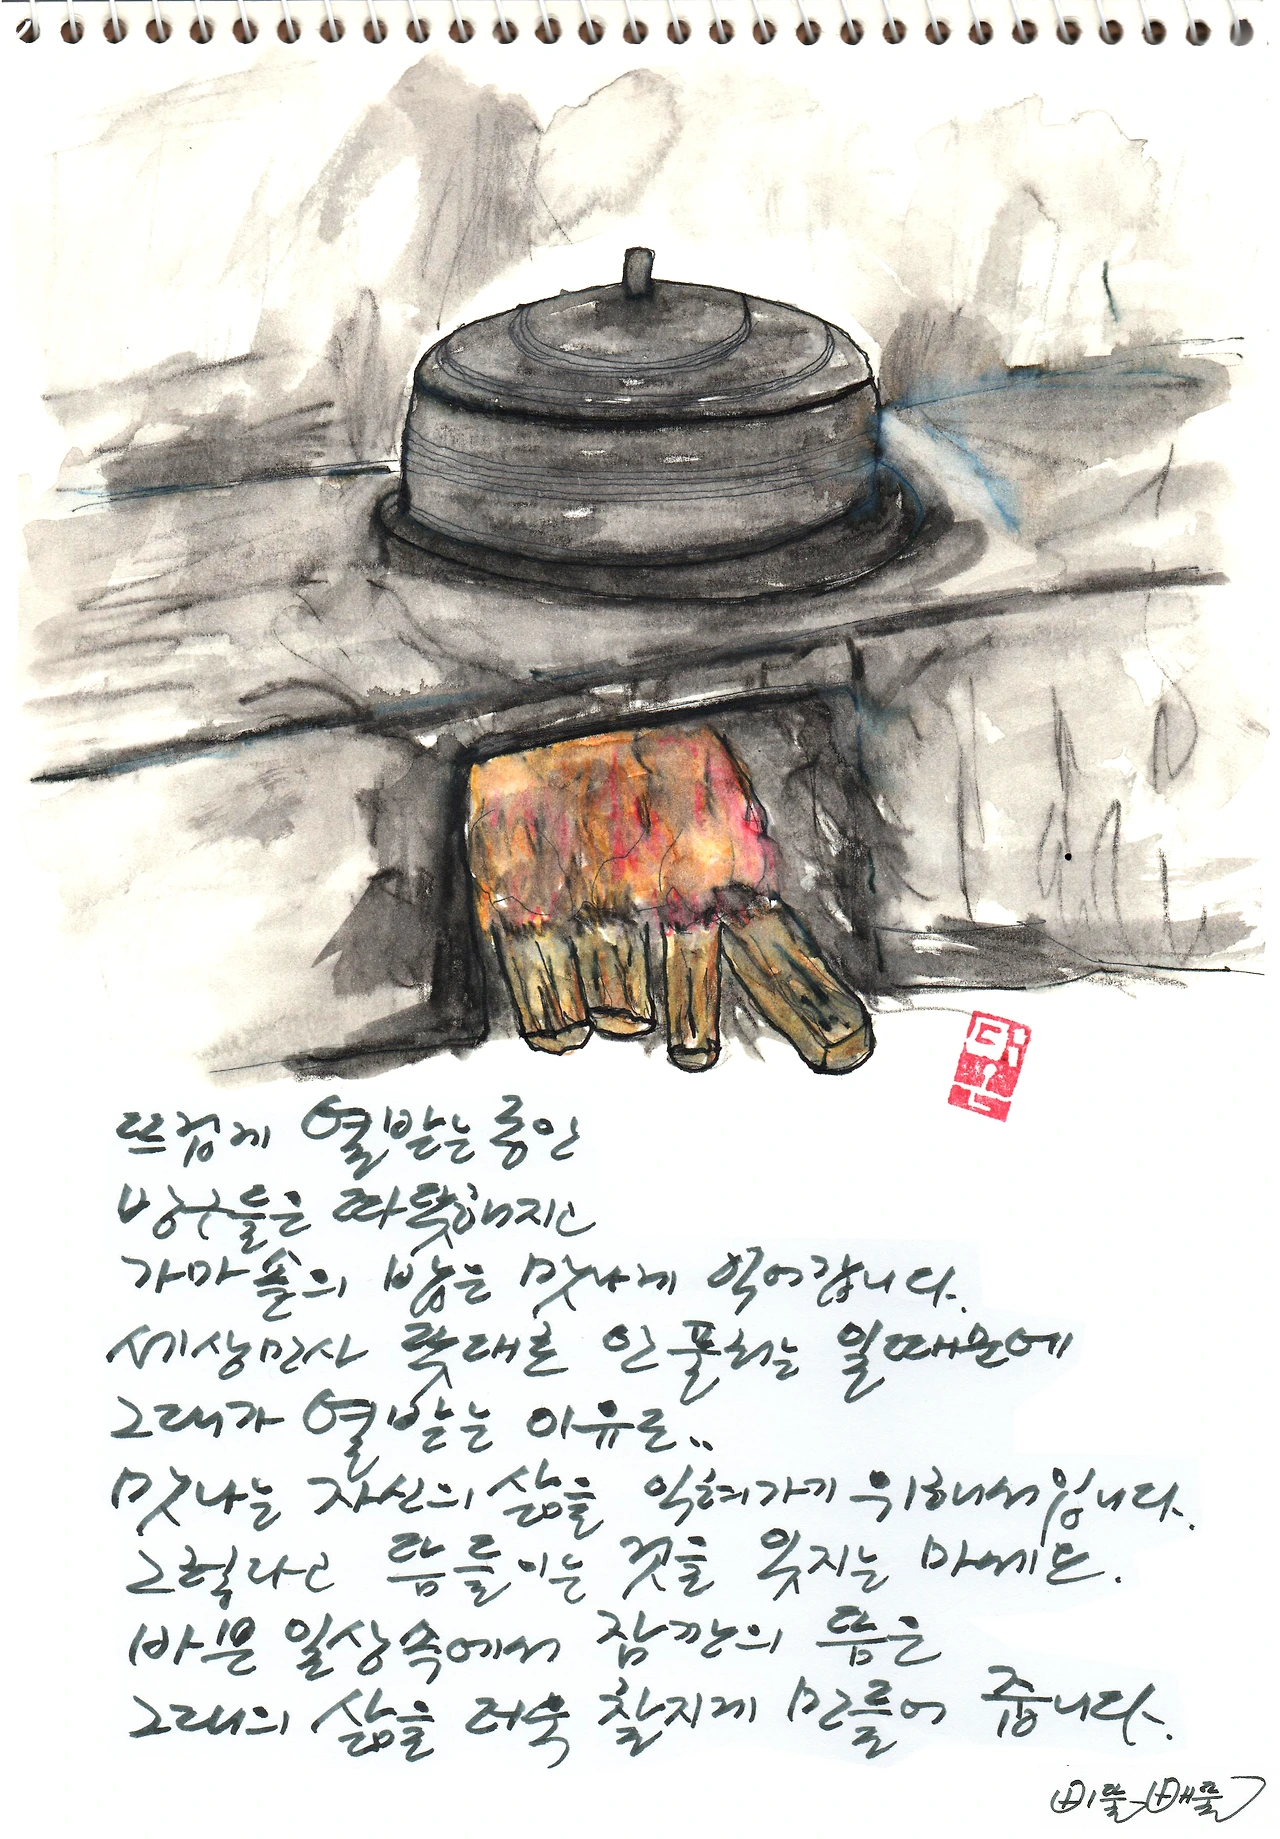 뜨겁게 열받는 동안
방구들은 따뜻해지고
가마솥의 밥은 맛나게 익어갑니다.
세상만사 뜻대로 안풀리는 일때문에
그대가 열받는 이유도..
맛나는 자신의 삶을 익혀가기 위해서입니다.
그렇다고 뜸들이는 것을 잊지는 마세요.
바쁜 일상속에서 잠깐의 뜸은
그대의 삶을 더욱 찰지게 만들어 줍니다.
삐뚤빼뚤